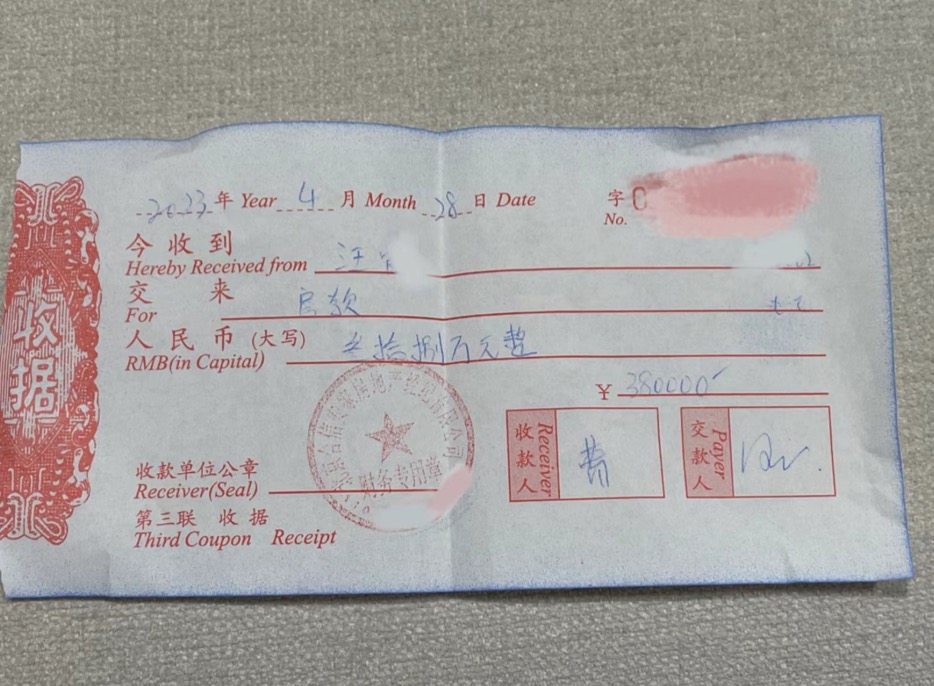 2023年 Year 4 月 Month 28 日 Date
字
No.
今收到
Hereby Received from 汪
交 来
For 房款
人民币 (大写) 叁拾捌万元整
RMB(in Capital)
¥ 380000
收据
收款人 Receiver
交款人 Payer
收款单位公章
Receiver(Seal)
财务专用章
第三联 收据
Third Coupon Receipt